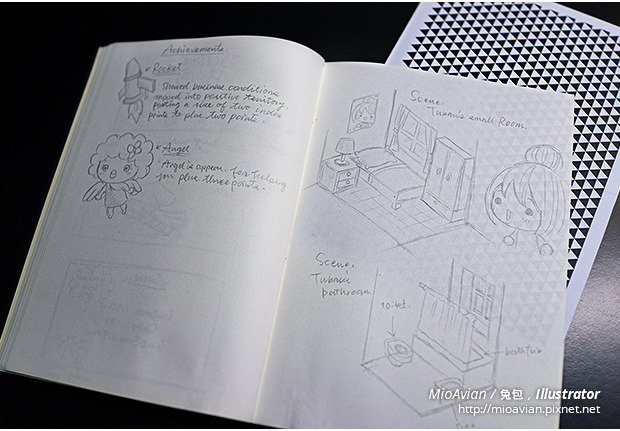 Achievements.
Rocket
Shared business conditions
moved into positive territory.
posting a rise of two index
points to plus two points.
Angel
Angel is appear. for helping
you plus three points.
Scene:
Tuban's small Room.
Scene.
Tuban's
bathroom
toilet.
bathtub.
sink
MioAvian / 兔包，Illustrator
http://mioavian.pixnet.net